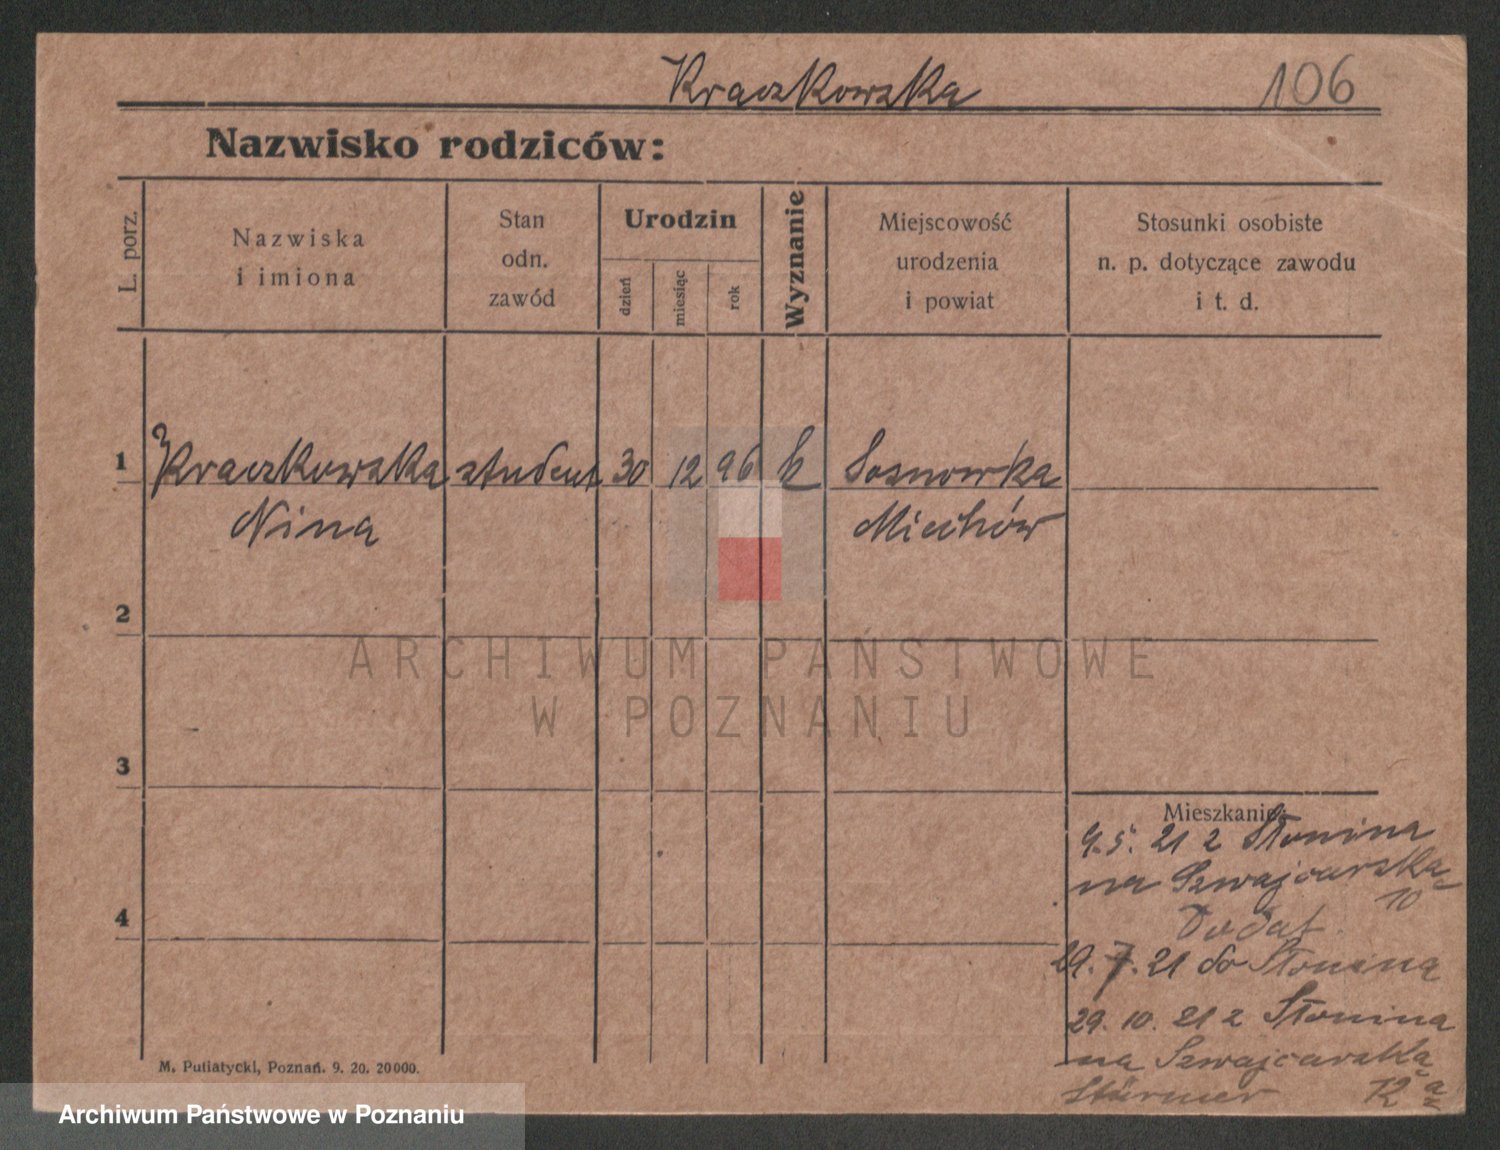 Kraczkowska
106
Nazwisko rodziców:
L. porz.
Nazwiska
i imiona
Stan
odn.
zawód
Urodzin
dzień
miesiąc
rok
Wyznanie
Miejscowość
urodzenia
i powiat
Stosunki osobiste
n. p. dotyczące zawodu
i t. d.
1 Kraczkowska student 30 12 96 k Sosnowka
Nina Miechów
2
ARCHIWUM PAŃSTWOWE
W POZNANIU
3
Mieszkanie:
9. 5. 21 z Słonina
na Szwajcarską
10
4
Dodat
29. 7. 21 do Słonina
29. 10. 21 z Słonina
na Szwajcarską
Stürmer 12
M. Putiatycki, Poznań. 9. 20. 20000.
Archiwum Państwowe w Poznaniu